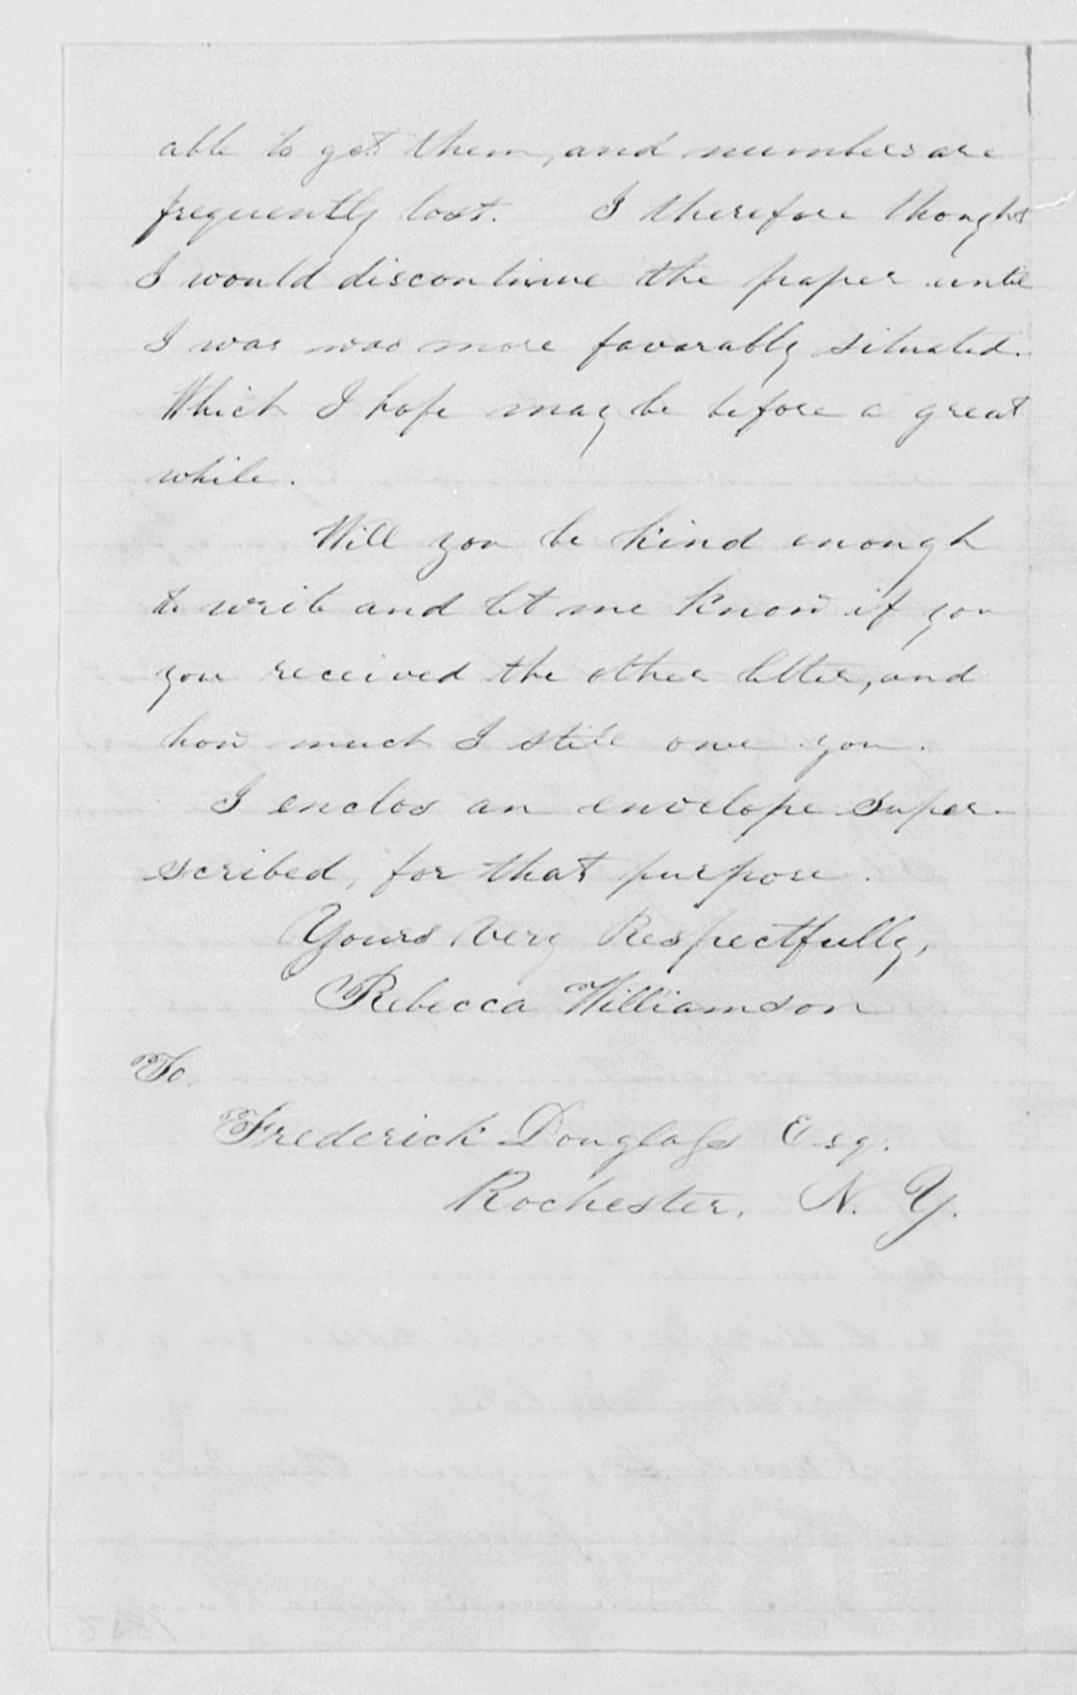 able to get them, and numbers are
frequently lost. I therefore thought
I would discontinue the paper until
I was was more favorably situated.
Which I hope may be before a great
while.
Will you be kind enough
to write and let me know if you
you received the other letter, and
how much I still owe you.
I enclos an envelope super-
scribed, for that purpose.
Yours Very Respectfully,
Rebecca Williamson
To.
Frederick Douglass Esq.
Rochester, N. Y.